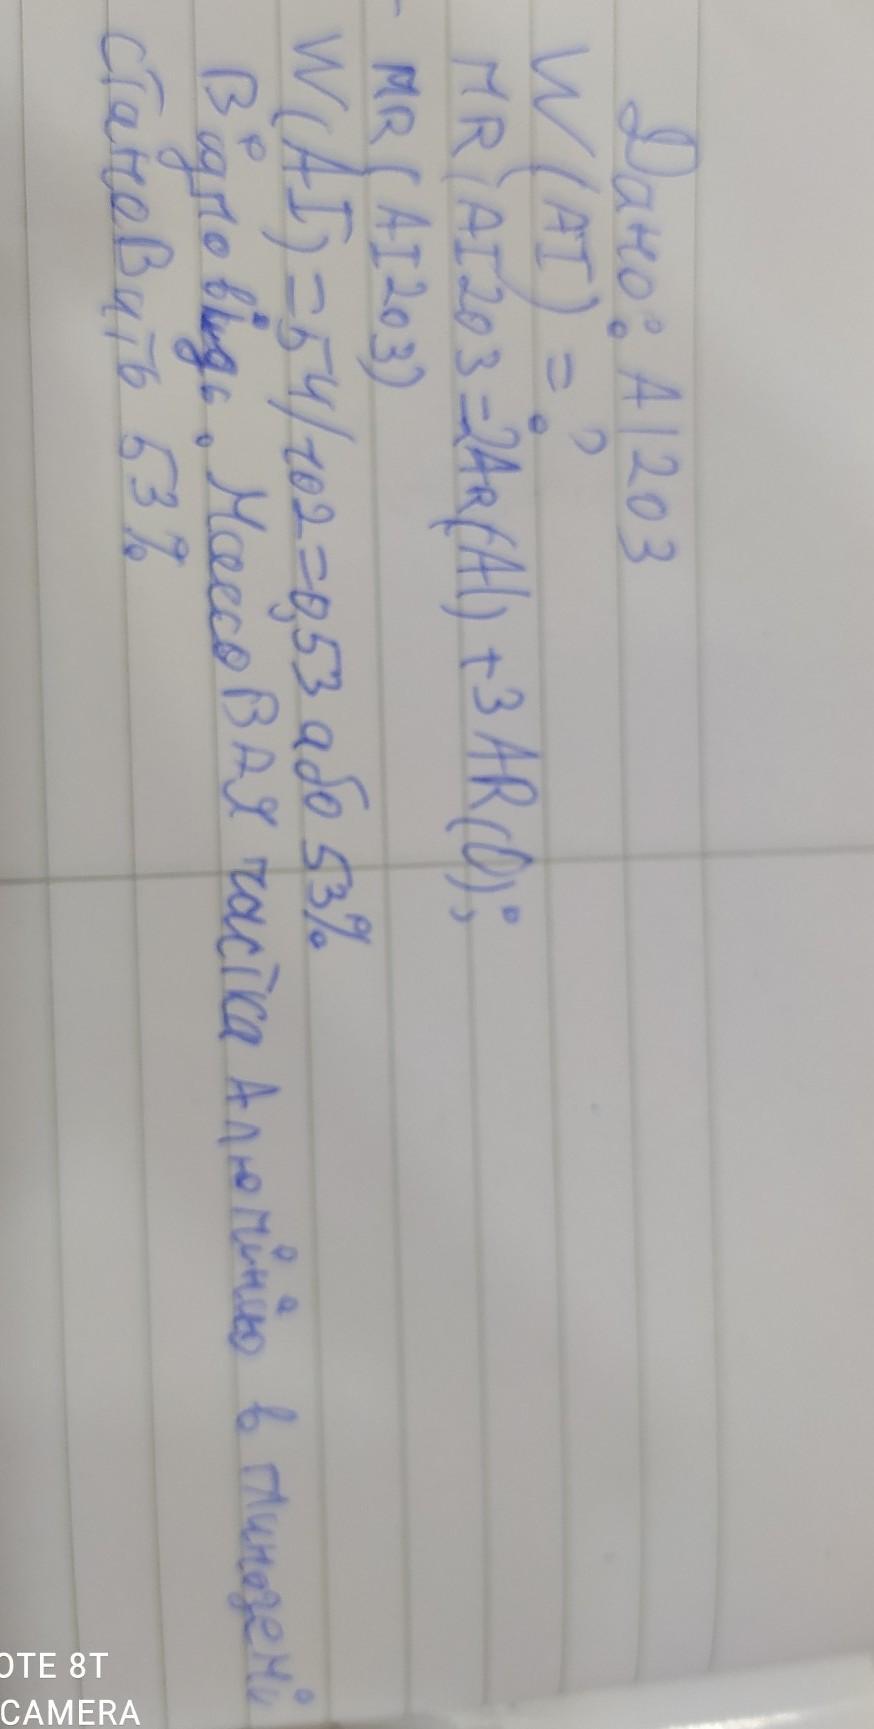 Дано: Al2O3
W(AI) = ?
MR(AI2O3 = 2AR(Al) + 3AR(O);
- MR(AI2O3)
W(AI) = 54/102 = 0,53 або 53%
Відповідь. Массовая частка Алюмінію в глиноземі
становить 53%
OTE 8T
CAMERA